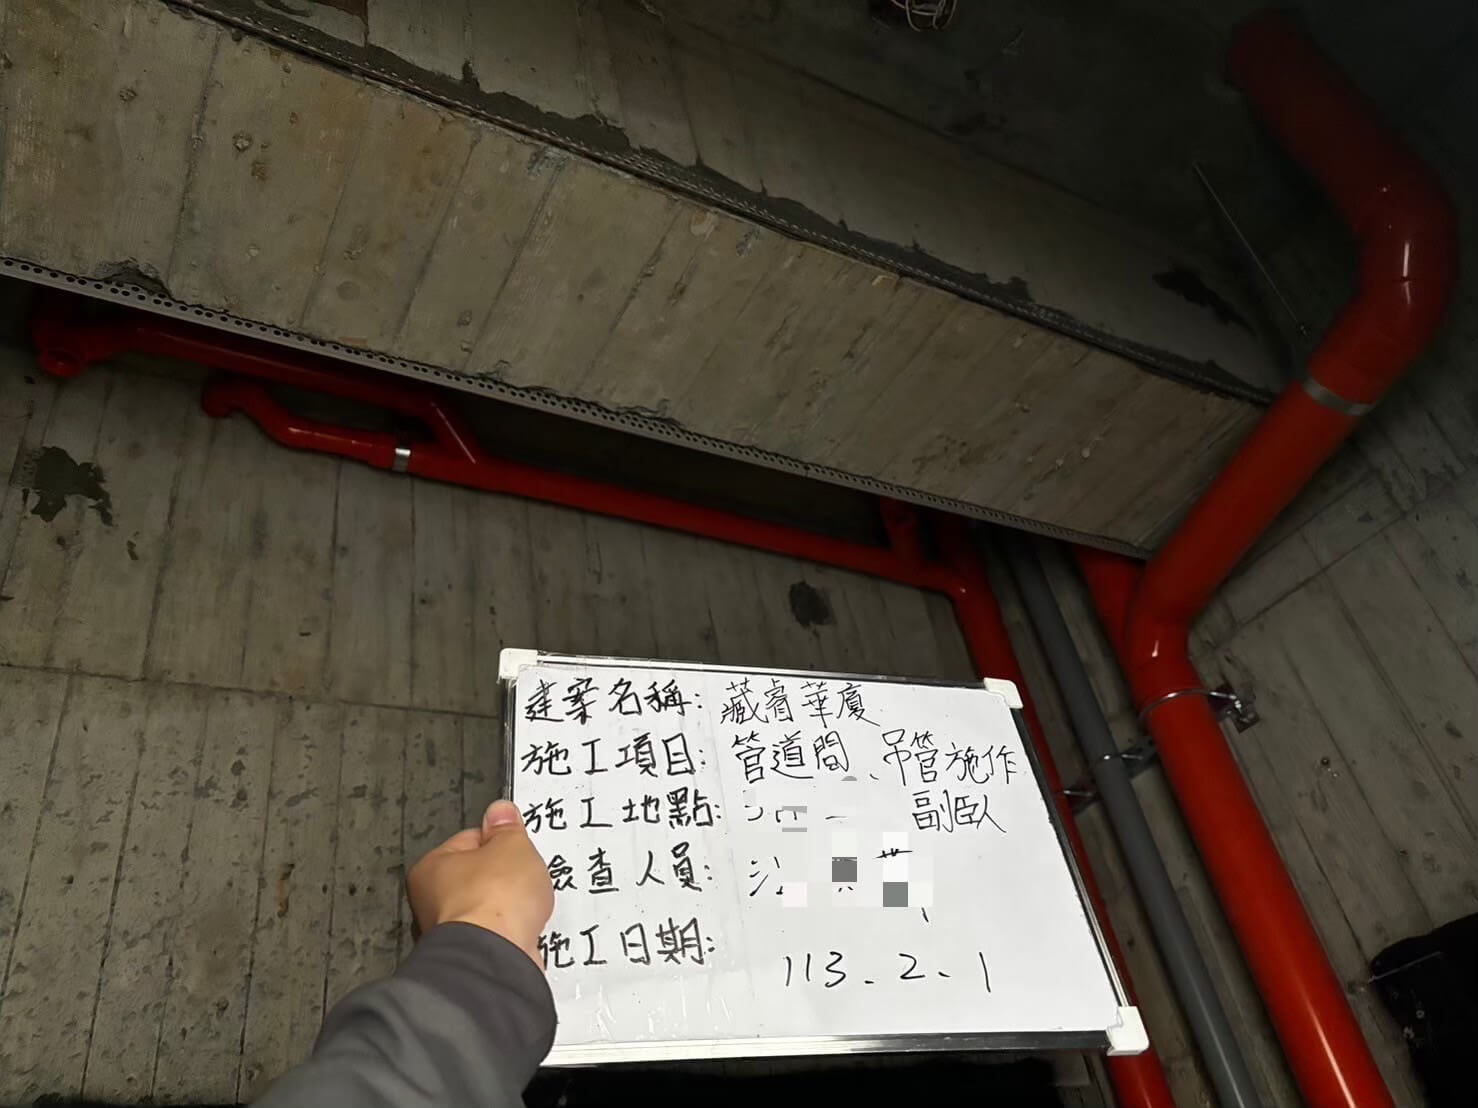 建案名稱: 藏睿華廈
施工項目: 管道間、吊管施作
施工地點: 副臥
檢查人員:
施工日期: 113.2.1